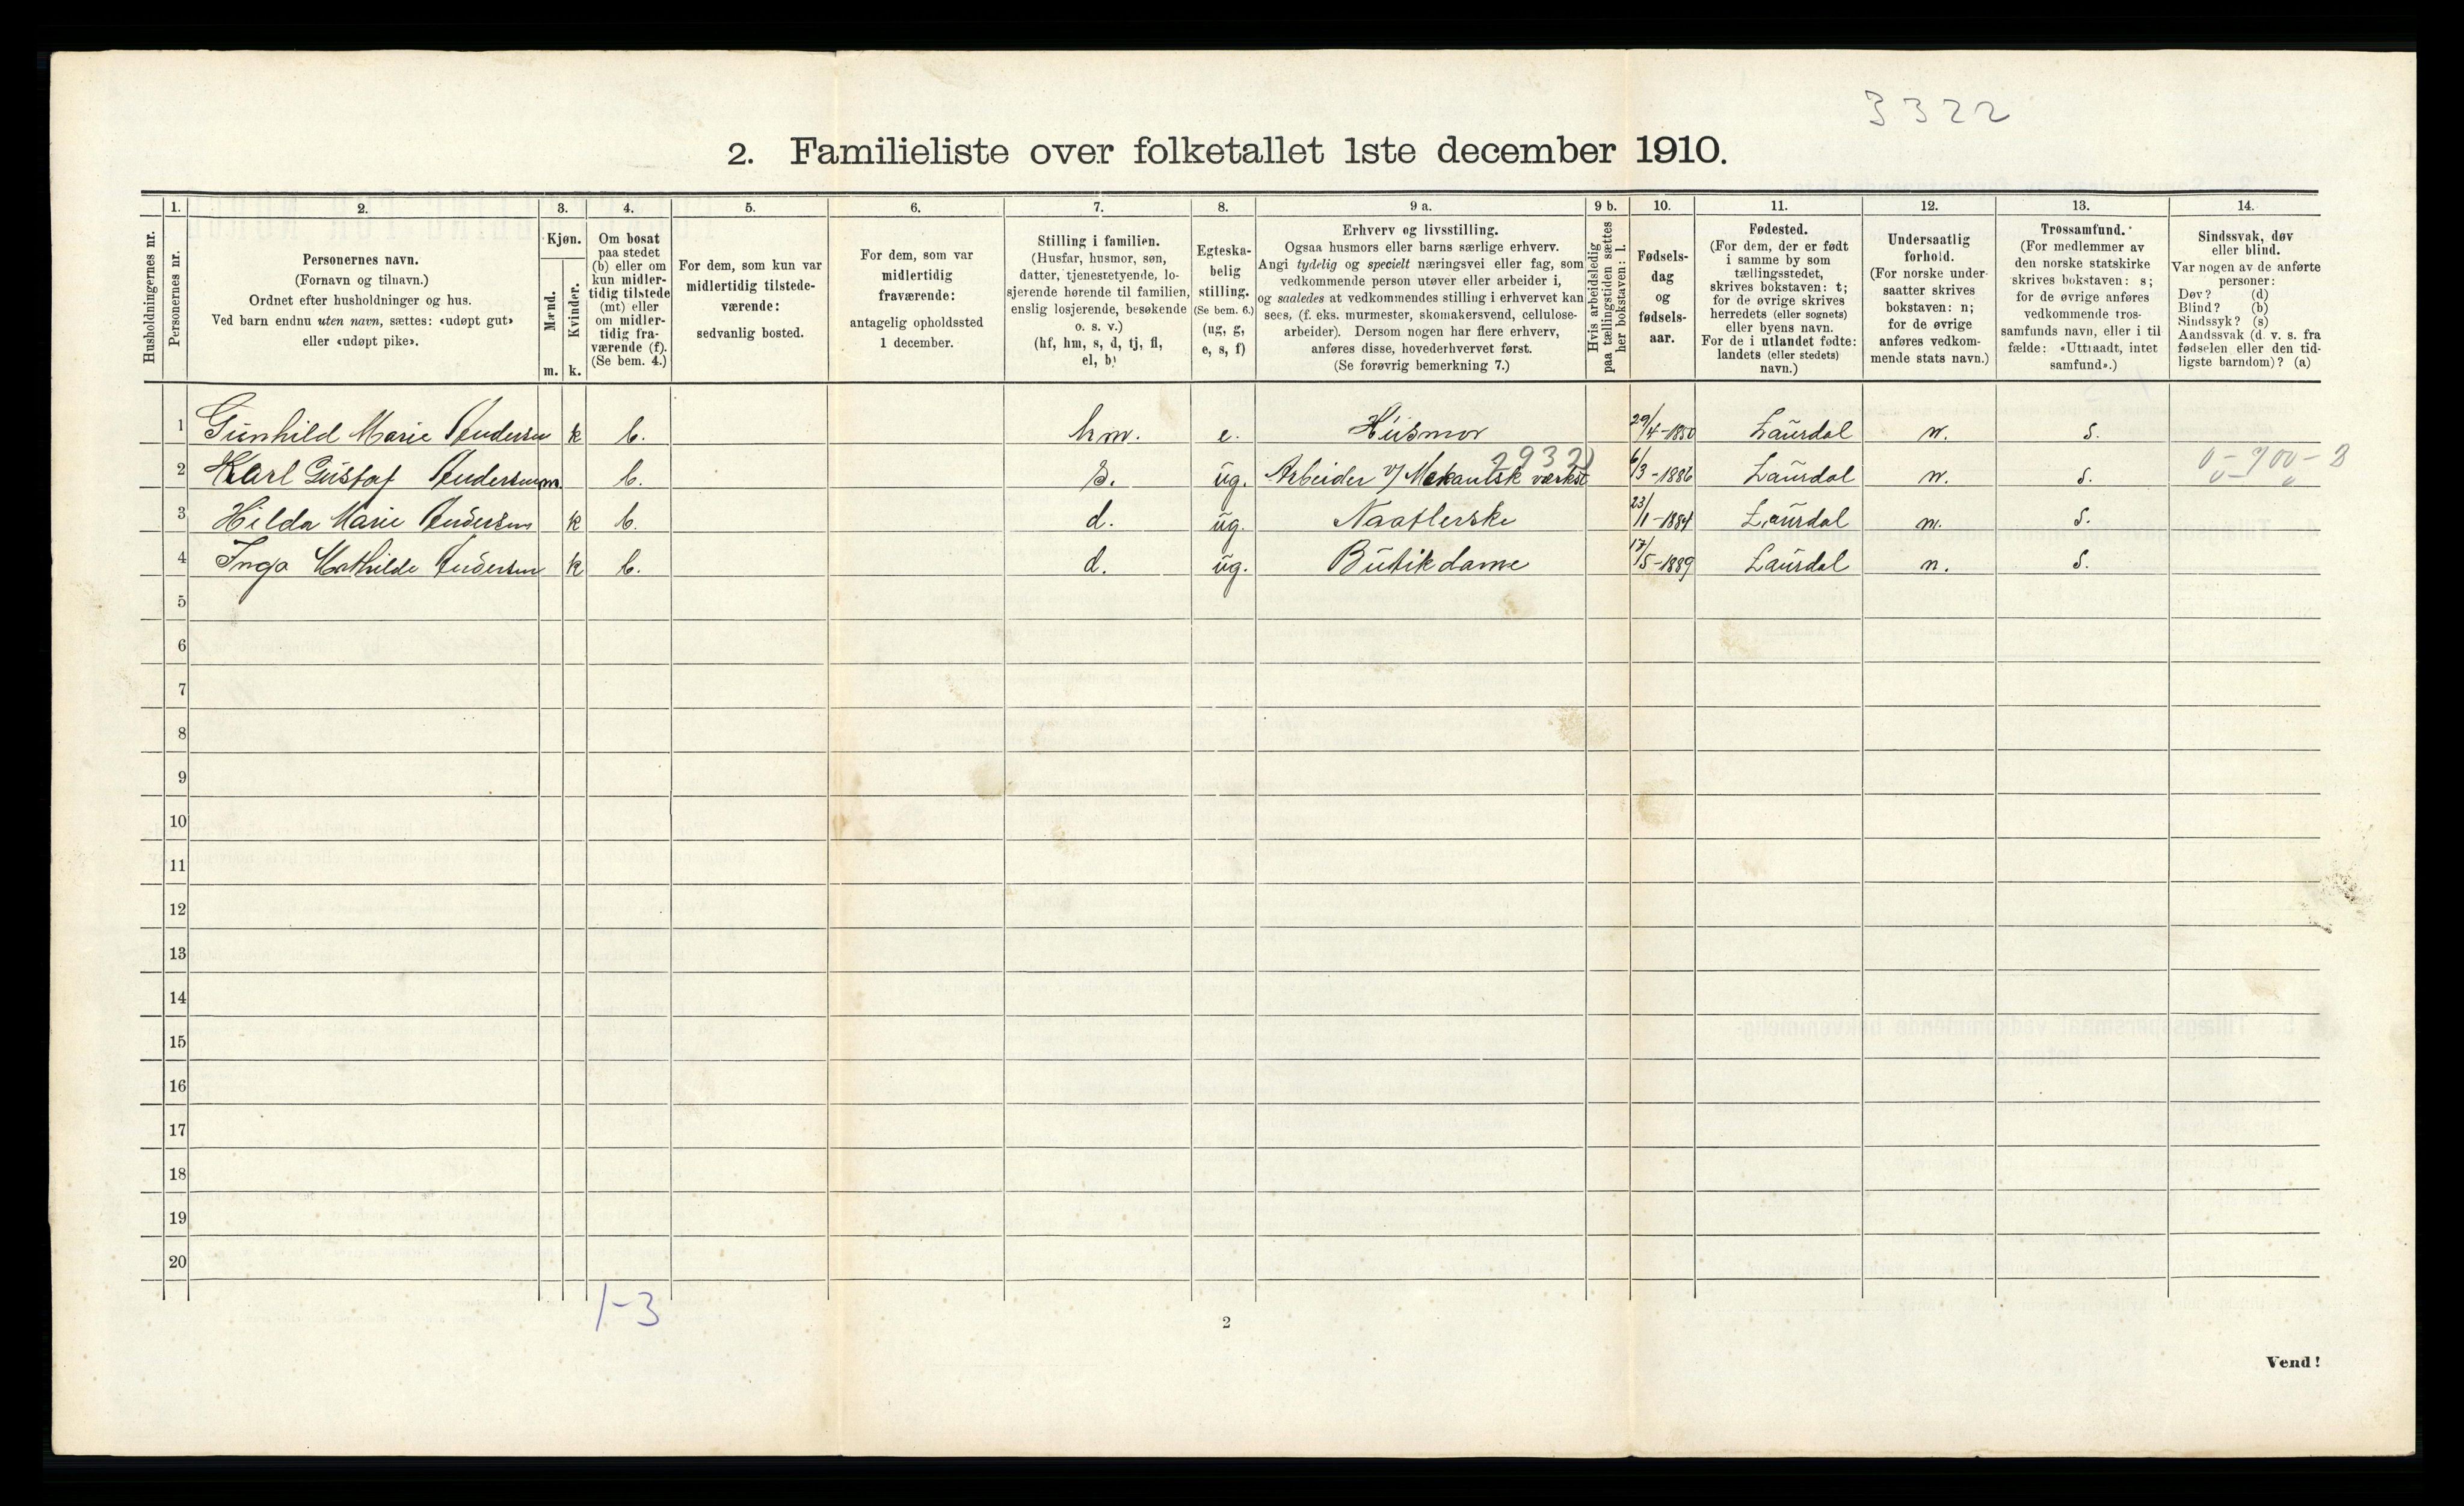 3322
2. Familieliste over folketallet 1ste december 1910.
1. 2. 3. 4. 5. 6. 7. 8. 9 a. 9 b. 10. 11. 12. 13. 14.
Husholdningernes nr.
Personernes nr.
Personernes navn.
(Fornavn og tilnavn.)
Ordnet efter husholdninger og hus.
Ved barn endnu uten navn, sættes: «udøpt gut»
eller «udøpt pike».
Kjøn.
Mænd.
Kvinder.
m. k.
Om bosat
paa stedet
(b) eller om
kun midler-
tidig tilstede
(mt) eller
om midler-
tidig fra-
værende (f).
(Se bem. 4.)
For dem, som kun var
midlertidig tilstede-
værende:
sedvanlig bosted.
For dem, som var
midlertidig
fraværende:
antagelig opholdssted
1 december.
Stilling i familien.
(Husfar, husmor, søn,
datter, tjenestetyende, lo-
sjerende hørende til familien,
enslig losjerende, besøkende
o. s. v.)
(hf, hm, s, d, tj, fl,
el, b)
Egteska-
belig
stilling.
(Se bem. 6.)
(ug, g,
e, s, f)
Erhverv og livsstilling.
Ogsaa husmors eller barns særlige erhverv.
Angi tydelig og specielt næringsvei eller fag, som
vedkommende person utøver eller arbeider i,
og saaledes at vedkommendes stilling i erhvervet kan
sees, (f. eks. murmester, skomakersvend, cellulose-
arbeider). Dersom nogen har flere erhverv,
anføres disse, hovederhvervet først.
(Se forøvrig bemerkning 7.)
Hvis arbeidsledig
paa tællingstiden sættes
her bokstaven: l.
Fødsels-
dag
og
fødsels-
aar.
Fødested.
(For dem, der er født
i samme by som
tællingsstedet,
skrives bokstaven: t;
for de øvrige skrives
herredets (eller sognets)
eller byens navn.
For de i utlandet fødte:
landets (eller stedets)
navn.)
Undersaatlig
forhold.
(For norske under-
saatter skrives
bokstaven: n;
for de øvrige
anføres vedkom-
mende stats navn.)
Trossamfund.
(For medlemmer av
den norske statskirke
skrives bokstaven: s;
for de øvrige anføres
vedkommende tros-
samfunds navn, eller i til
fælde: «Uttraadt, intet
samfund».)
Sindssvak, døv
eller blind.
Var nogen av de anførte
personer:
Døv? (d)
Blind? (b)
Sindssyk? (s)
Aandssvak (d. v. s. fra
fødselen eller den tid-
ligste barndom)? (a)
1 Gunhild Marie Andersen k b. hm. e. Husmor 29/4-1850 Laurdal n. s.
2932
2 Karl Gustaf Andersen m. b. s. ug. Arbeider v/ Mekanisk værkst 6/3-1886 Laurdal n. s.
3 Hilda Marie Andersen k b. d. ug. Naatlerske 23/1-1884 Laurdal n. s.
4 Inga Mathilde Andersen k b. d. ug. Butikdame 17/5-1889 Laurdal n. s.
5
6
7
8
9
10
11
12
13
14
15
16
17
18
19
20
1-3
2
Vend!